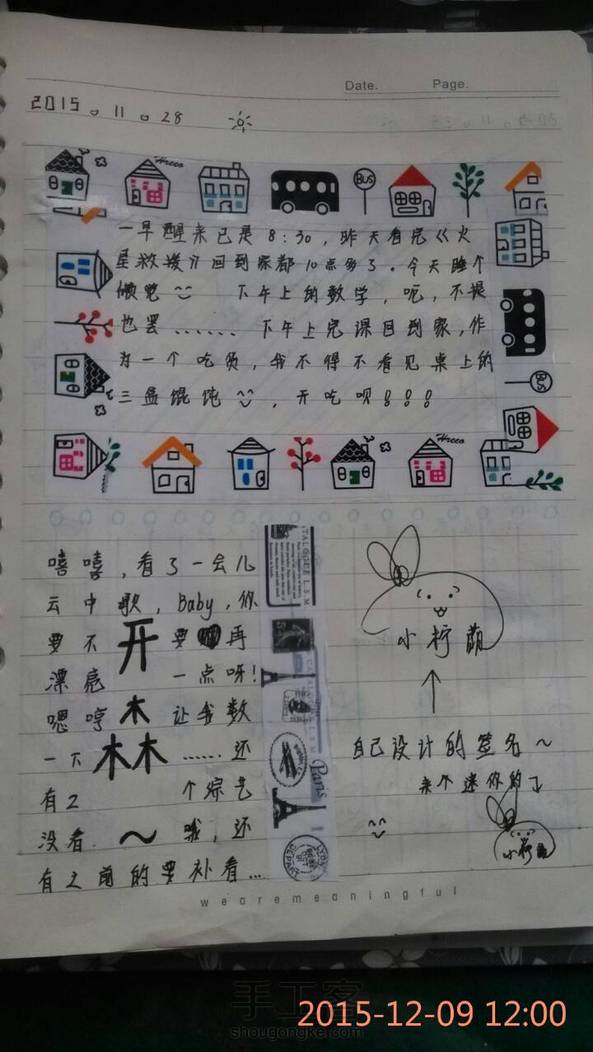 Date. Page.
2015。11。28
一早醒来已是8:30,昨天看完《火
星救援》回到家都10点多了。今天睡个
懒觉 下午上的数学,呃,不提
也罢...... 下午上完课回到家,作
为一个吃货,我不得不看见桌上的
三盘馄饨 ,开吃呗!!!
嘻嘻,看了一会儿
云中歌,baby,你
要不开要 再
漂亮一点呀!
嗯哼木让我数
一下木木......还
有2个综艺
没看~哦,还
有之前的要补看...
小柠萌
自己设计的签名~
来个迷你的
小柠萌
BUS
BUS
Paris
wearemeaningful
手工客
shougongke.com
2015-12-09 12:00